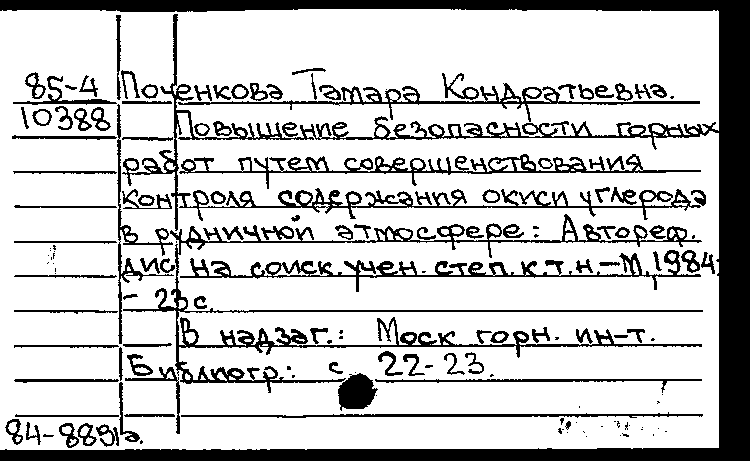 85-4 Поченкова, Тамара Кондратьевна.
10388 Повышение безопасности горных
работ путем совершенствования
контроля содержания окиси углерода
в рудничной атмосфере: Автореф.
дис на соиск. учен. степ. к.т.н.-М., 1984.
- 23 с.
В надзаг.: Моск горн. ин-т.
Библиогр.: с 22-23.
84-8891а.